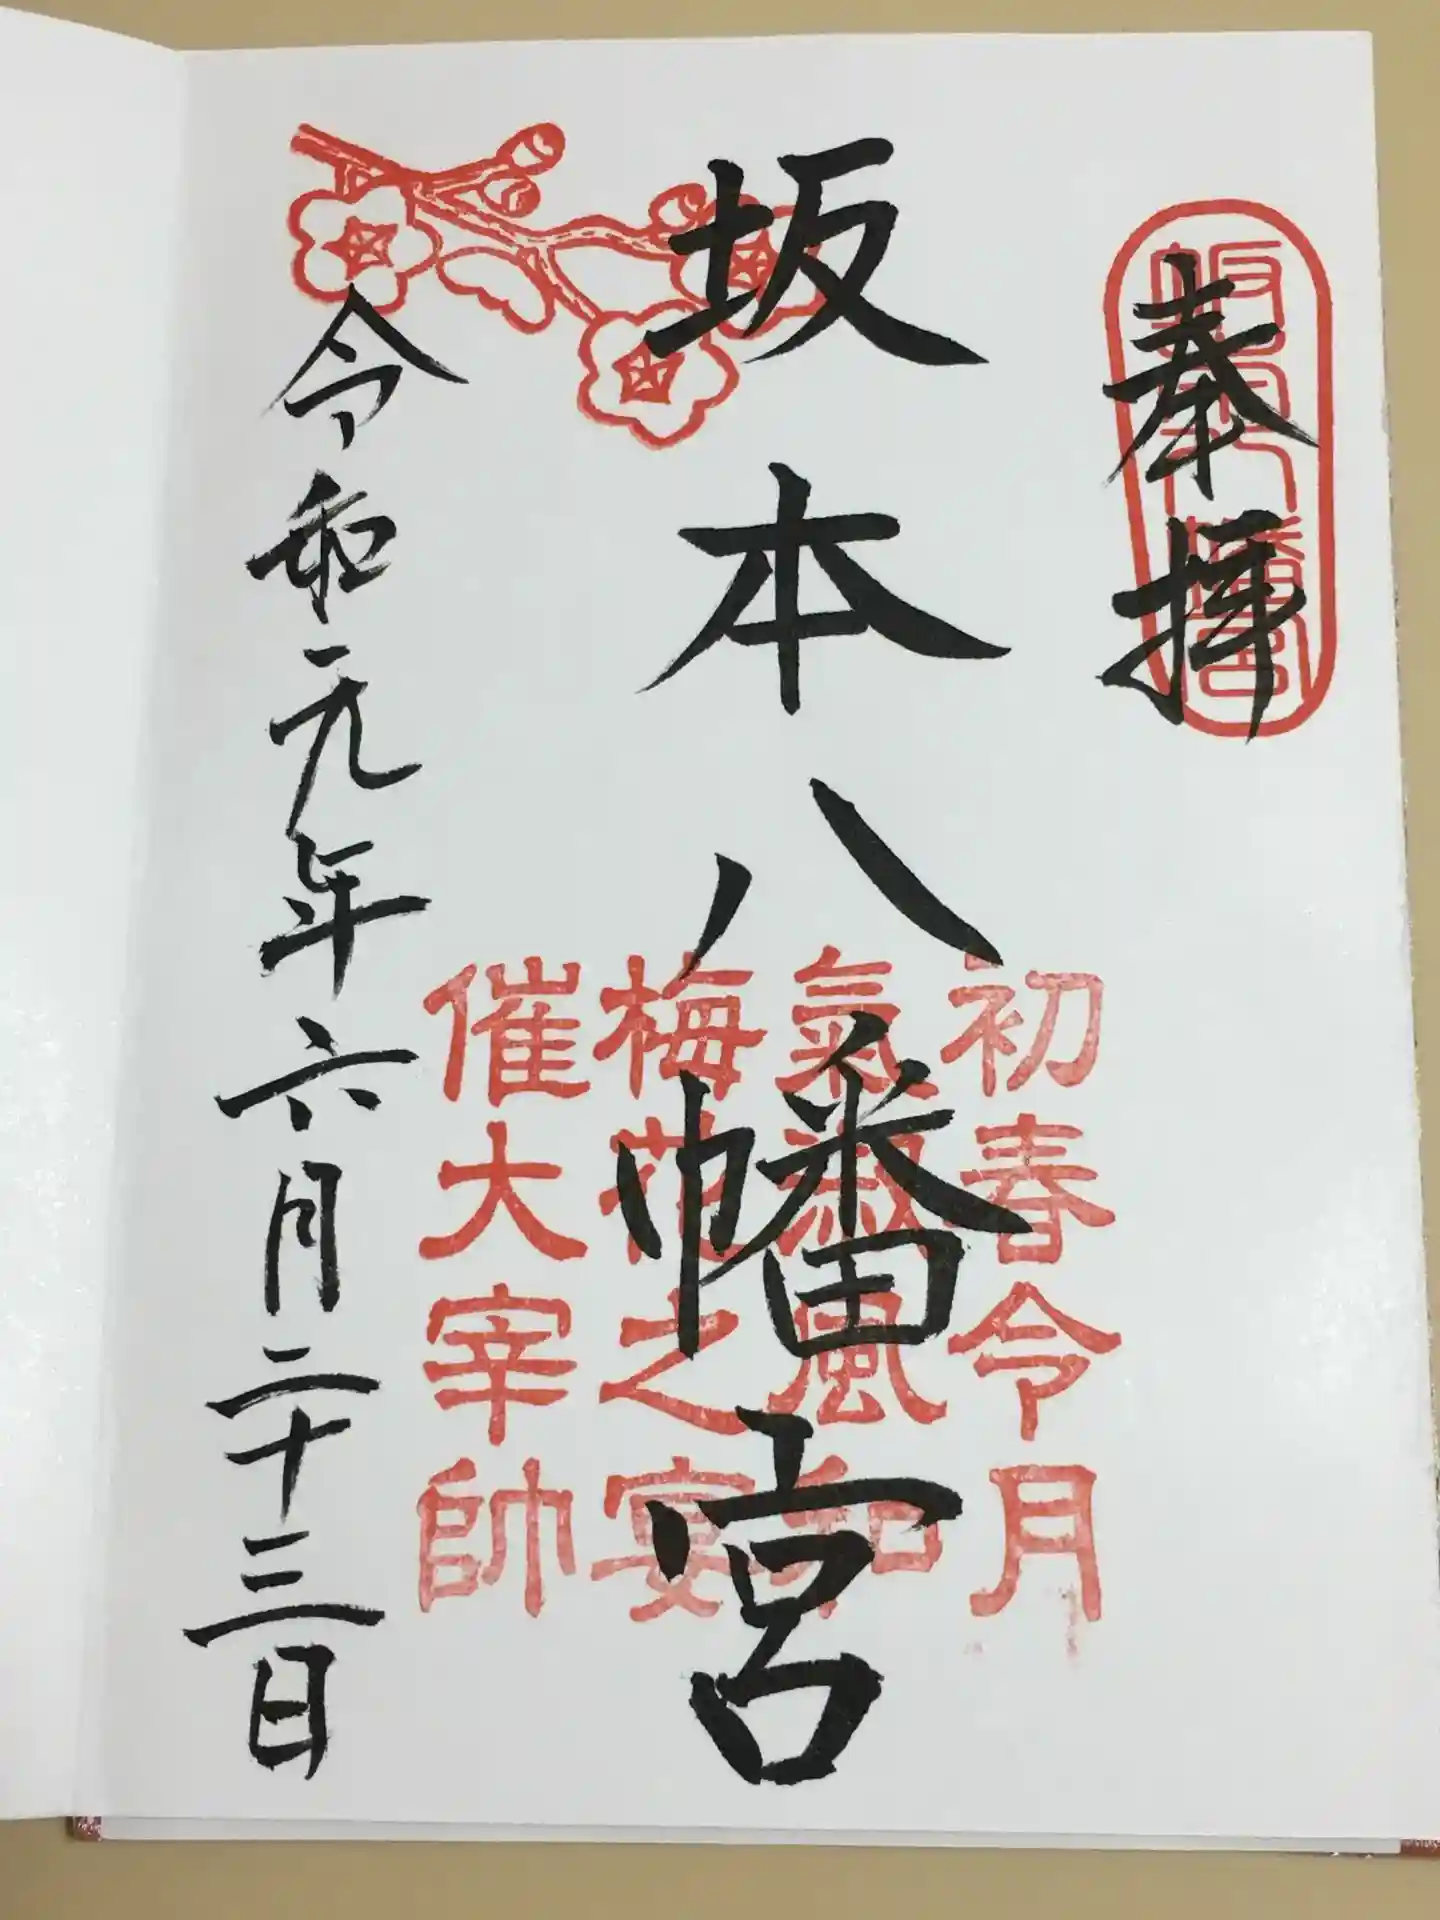 奉拝
坂本八幡宮
坂本八幡宮
初春令月
氣淑風和
梅花之宴
催大宰帥
令和元年六月二十三日